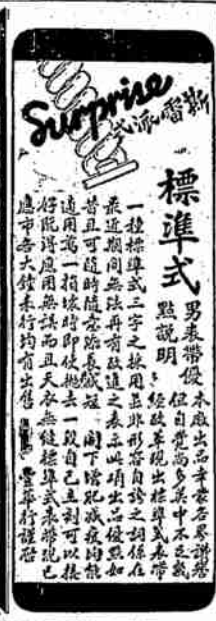 Surprise
斯雷派式
標準式
男表帶優
點說明
本廠出品幸蒙各界讚譽
但自覺尚多美中不足幾
經改革現出標準式表帶
一種標準式三字之採用並非形容自誇之詞係在
最近期間無法再有改進之表示此項出品優點如
昔且可隨時隨意除長減短 閣下增肥減瘦均能
適用萬一損壞時即使拋去一段自己立刻可以接
好既得應用無誤而且天衣無縫標準式表帶現已
應市各大鐘表行均有出售 豐華行謹啓